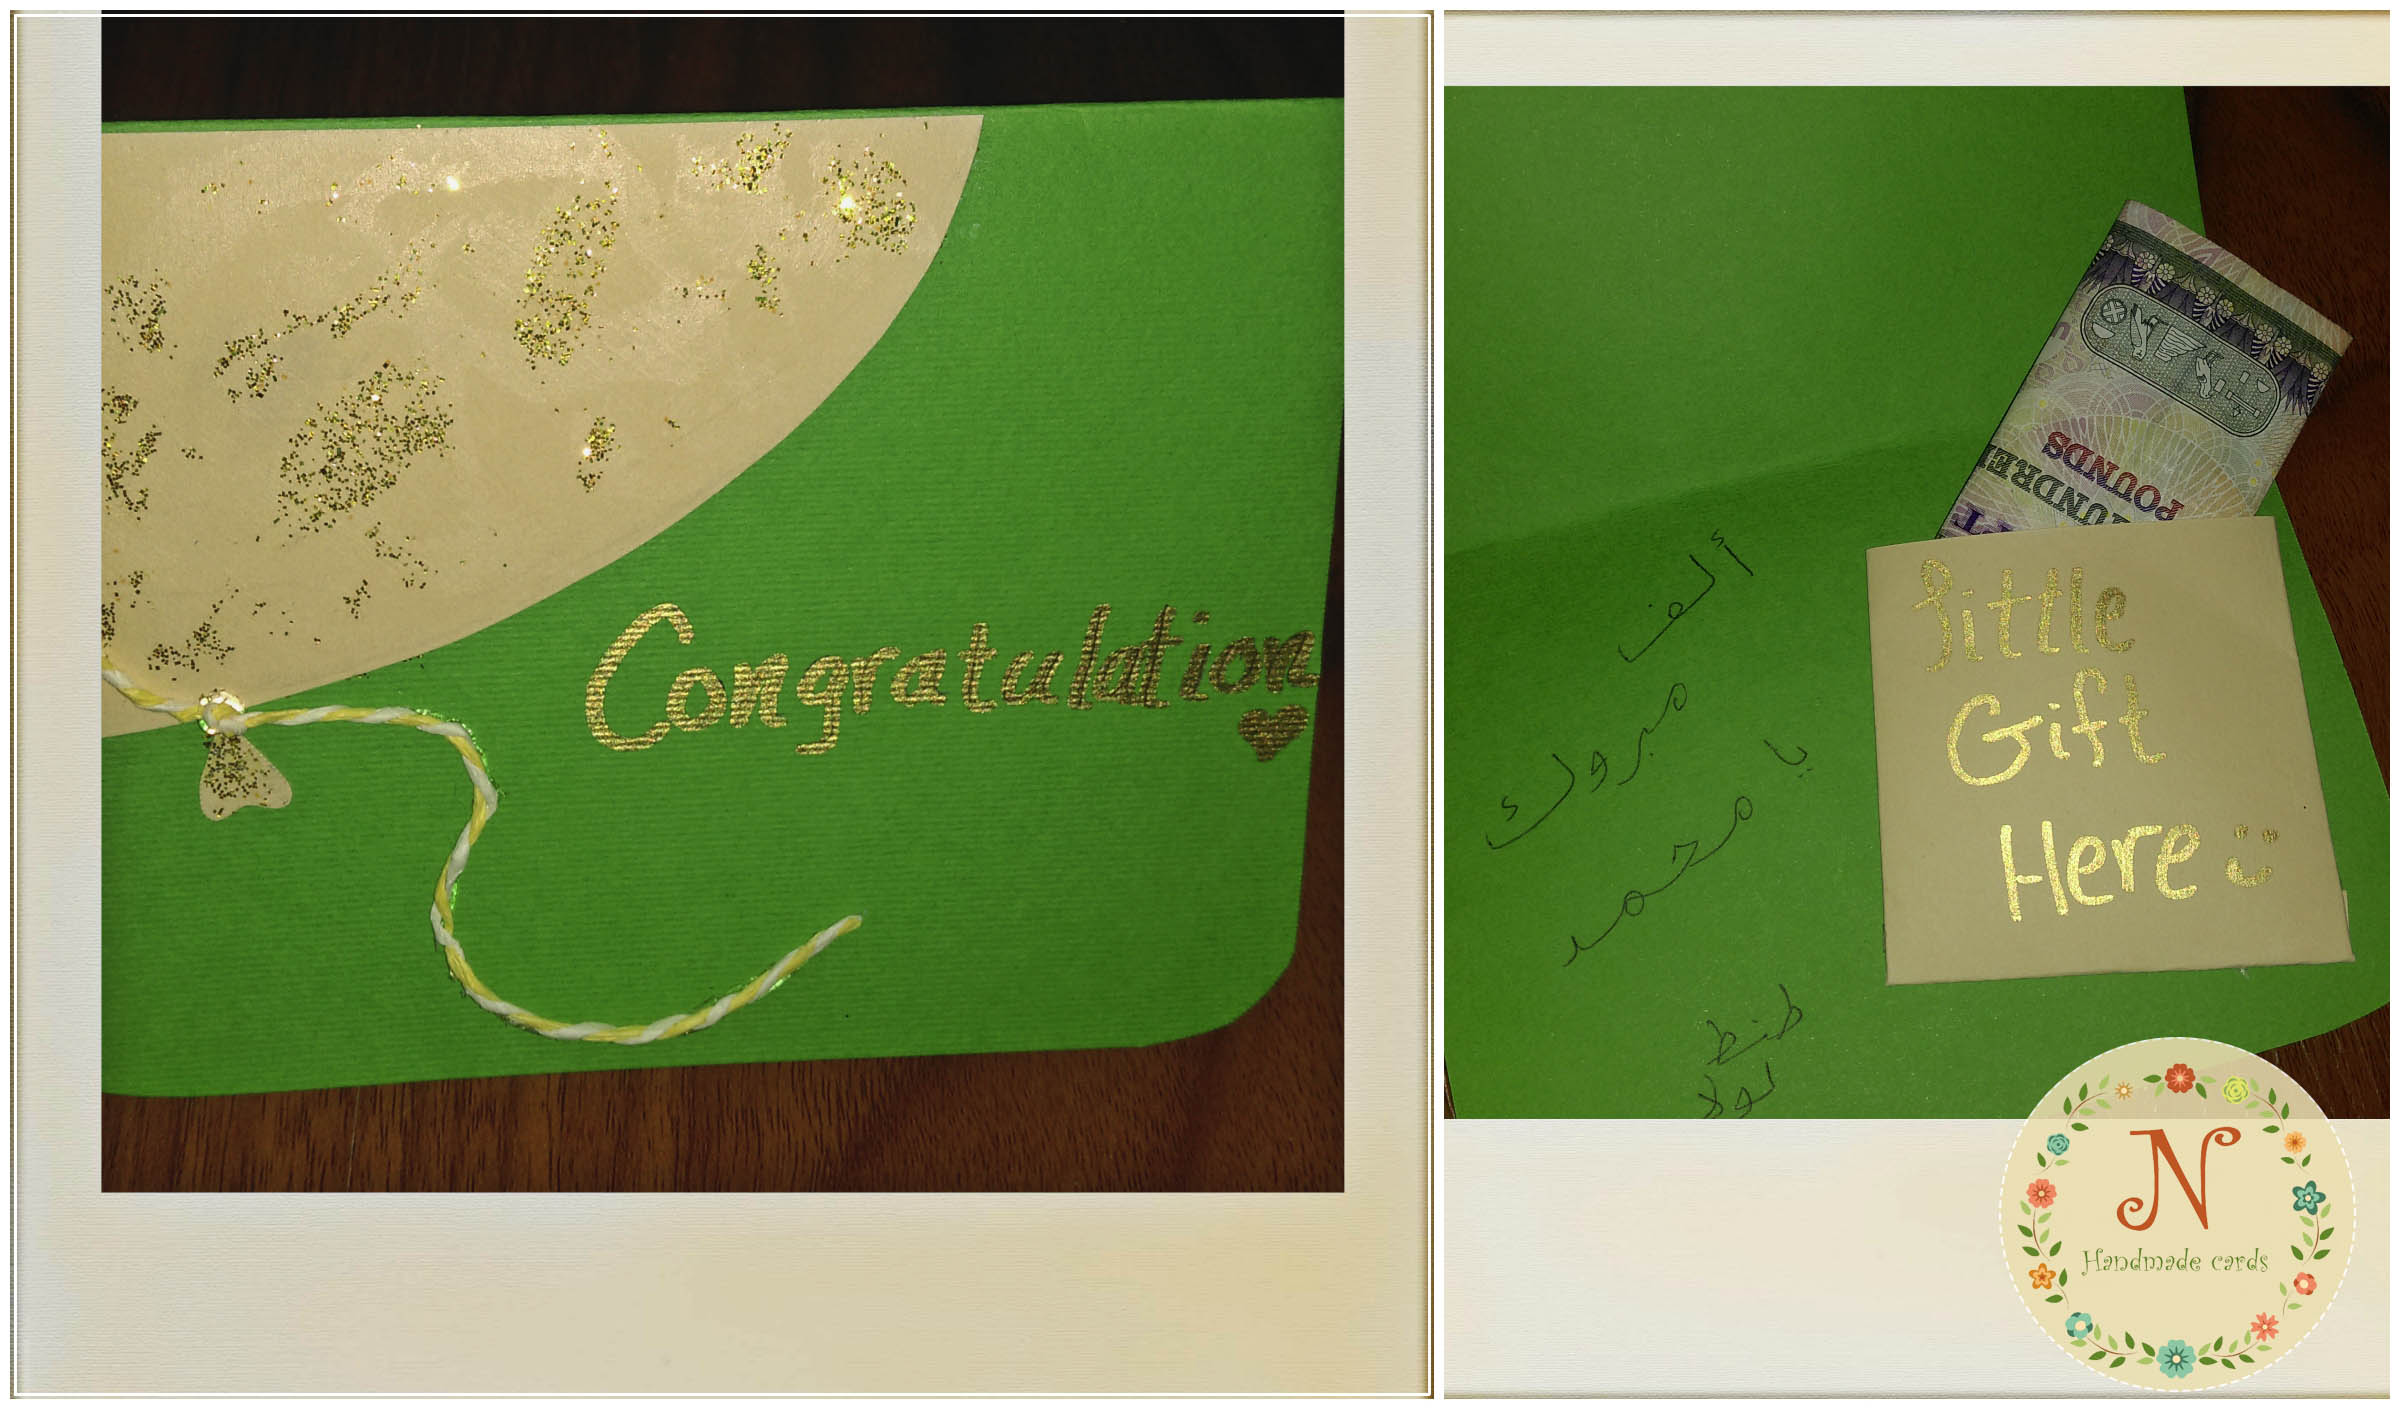 Congratulation
ألف
مبروك
يا
محمد
طنط
لولا
UNDRE
POUNDS
Little
Gift
Here
N
Handmade cards